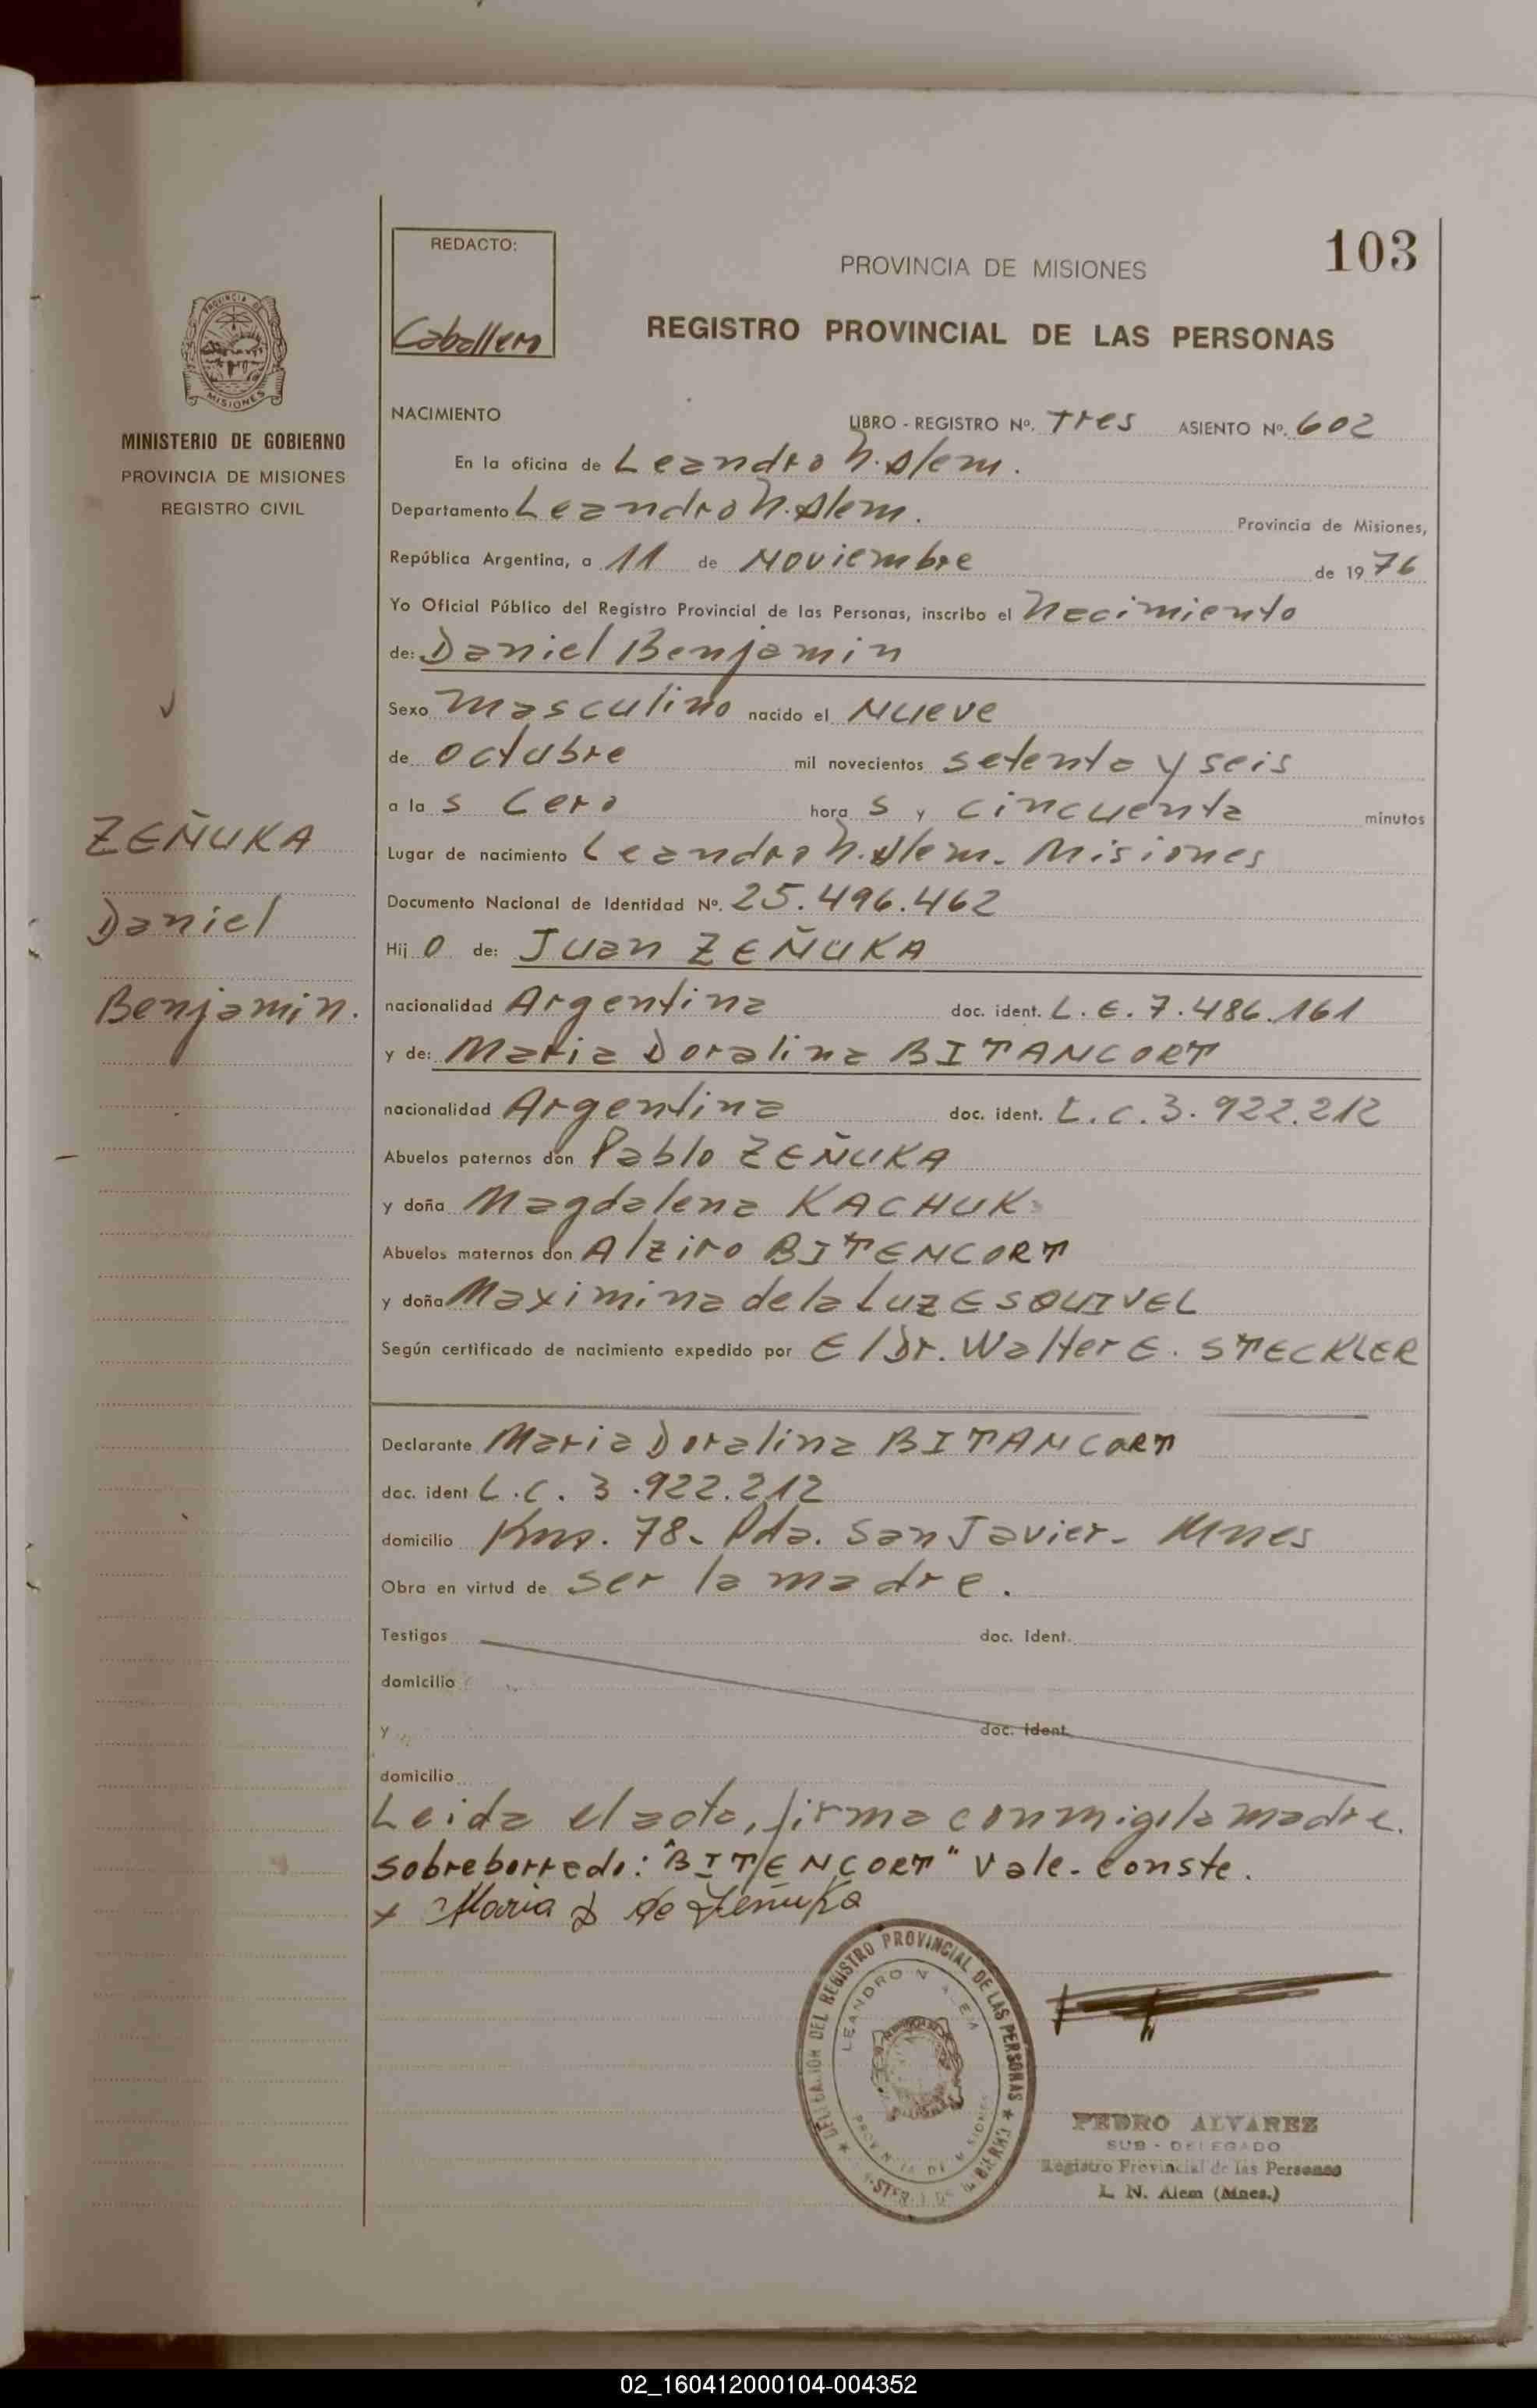 REDACTO:
Caballero
103
PROVINCIA DE MISIONES
REGISTRO PROVINCIAL DE LAS PERSONAS
PROVINCIA DE MISIONES
MINISTERIO DE GOBIERNO
PROVINCIA DE MISIONES
REGISTRO CIVIL
NACIMIENTO LIBRO - REGISTRO Nº. Tres ASIENTO Nº. 602
En la oficina de Leandro N. Alem.
Departamento Leandro N. Alem. Provincia de Misiones,
República Argentina, a 11 de Noviembre de 1976
Yo Oficial Público del Registro Provincial de las Personas, inscribo el Nacimiento
de: Daniel Benjamin
Sexo Masculino nacido el Nueve
de octubre mil novecientos setenta y seis
a las Cero horas y cincuenta minutos
ZEÑUKA
Daniel
Benjamin.
Lugar de nacimiento Leandro N. Alem. Misiones
Documento Nacional de Identidad Nº. 25.496.462
Hijo de: Juan ZEÑUKA
nacionalidad Argentina doc. ident. L.E. 7.486.161
y de: Maria Doralina BITANCORT
nacionalidad Argentina doc. ident. L.C. 3.922.212
Abuelos paternos don Pablo ZEÑUKA
y doña Magdalena KACHUK
Abuelos maternos don Alziro BITENCORT
y doña Maximina de la Luz ESQUIVEL
Según certificado de nacimiento expedido por El Dr. Walter E. STECKLER
Declarante Maria Doralina BITANCORT
doc. ident L.C. 3.922.212
domicilio Kms. 78- Pda. San Javier- Mnes
Obra en virtud de ser la madre.
Testigos doc. ident.
domicilio
y doc. ident.
domicilio
Leida el acta, firma conmigo la madre.
sobreborrado: "BITENCORT" Vale. conste.
x Maria D de Zeñuka
DELEGACION DEL REGISTRO PROVINCIAL DE LAS PERSONAS
LEANDRO N ALEM
PROVINCIA DE MISIONES
PEDRO ALVAREZ
SUB - DELEGADO
Registro Provincial de las Personas
L. N. Alem (Mnes.)
02_160412000104-004352